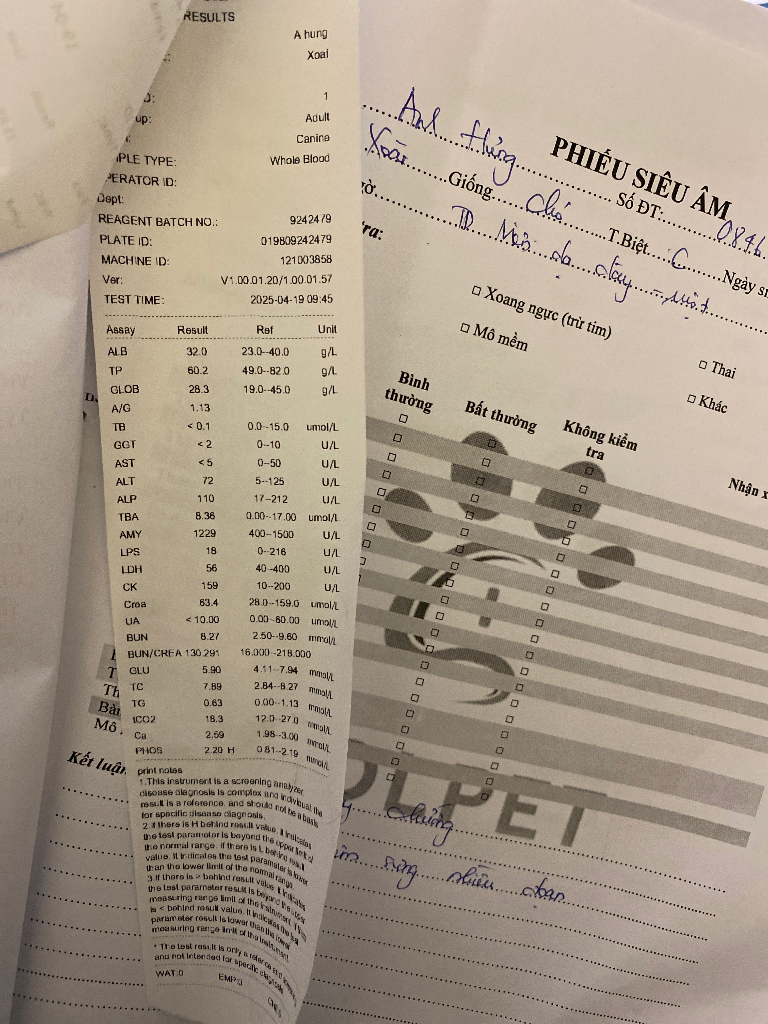 RESULTS
A hung
Xoai
1
Adult
Canine
TYPE: Whole Blood
OPERATOR ID:
Dept:
REAGENT BATCH NO.: 9242479
PLATE ID: 019809242479
MACHINE ID: 121003858
Ver: V1.00.01.20/1.00.01.57
TEST TIME: 2025-04-19 09:45
Assay Result Ref Unit
ALB 32.0 23.0--40.0 g/L
TP 60.2 49.0--82.0 g/L
GLOB 28.3 19.0--45.0 g/L
A/G 1.13
TB < 0.1 0.0--15.0 umol/L
GGT < 2 0--10 U/L
AST < 5 0--50 U/L
ALT 72 5--125 U/L
ALP 110 17--212 U/L
TBA 8.36 0.00--17.00 umol/L
AMY 1229 400--1500 U/L
LPS 18 0--216 U/L
LDH 56 40--400 U/L
CK 159 10--200 U/L
Crea 63.4 28.0--159.0 umol/L
UA < 10.00 0.00--60.00 umol/L
BUN 8.27 2.50--9.60 mmol/L
BUN/CREA 130.291 16.000--218.000
GLU 5.90 4.11--7.94 mmol/L
TC 7.89 2.84--8.27 mmol/L
TG 0.63 0.00--1.13 mmol/L
tCO2 18.3 12.0--27.0 mmol/L
Ca 2.59 1.98--3.00 mmol/L
PHOS 2.20 H 0.81--2.19 mmol/L
print notes
1.This instrument is a screening analyzer,
disease diagnosis is complex and individual, the
result is a reference, and should not be a basis
for specific disease diagnosis.
2.if there is H behind result value, it indicates
the test parameter is beyond the upper limit of
the normal range. if there is L behind result
value. It indicates the test parameter is lower
than the lower limit of the normal range.
3.If there is > behind result value, it indicates
the test parameter result is beyond the upper
measuring range limit of the instrument. If there
is < behind result value. It indicates the test
parameter result is lower than the lower
measuring range limit of the instrument.
* The test result is only a reference
and not intended for specific diagnosis
WAT:0 EMP:0
PHIẾU SIÊU ÂM
Anh Hưng Số ĐT: 0846
Xoài Giống Chó T.Biệt C Ngày
TD Mòn dạ dày - ruột
tra:
□ Xoang ngực (trừ tim)
□ Mô mềm
□ Thai
□ Khác
Bình thường Bất thường Không kiểm tra Nhận
OLPET
Mô
Kết luận
chứng
nhiều đoạn